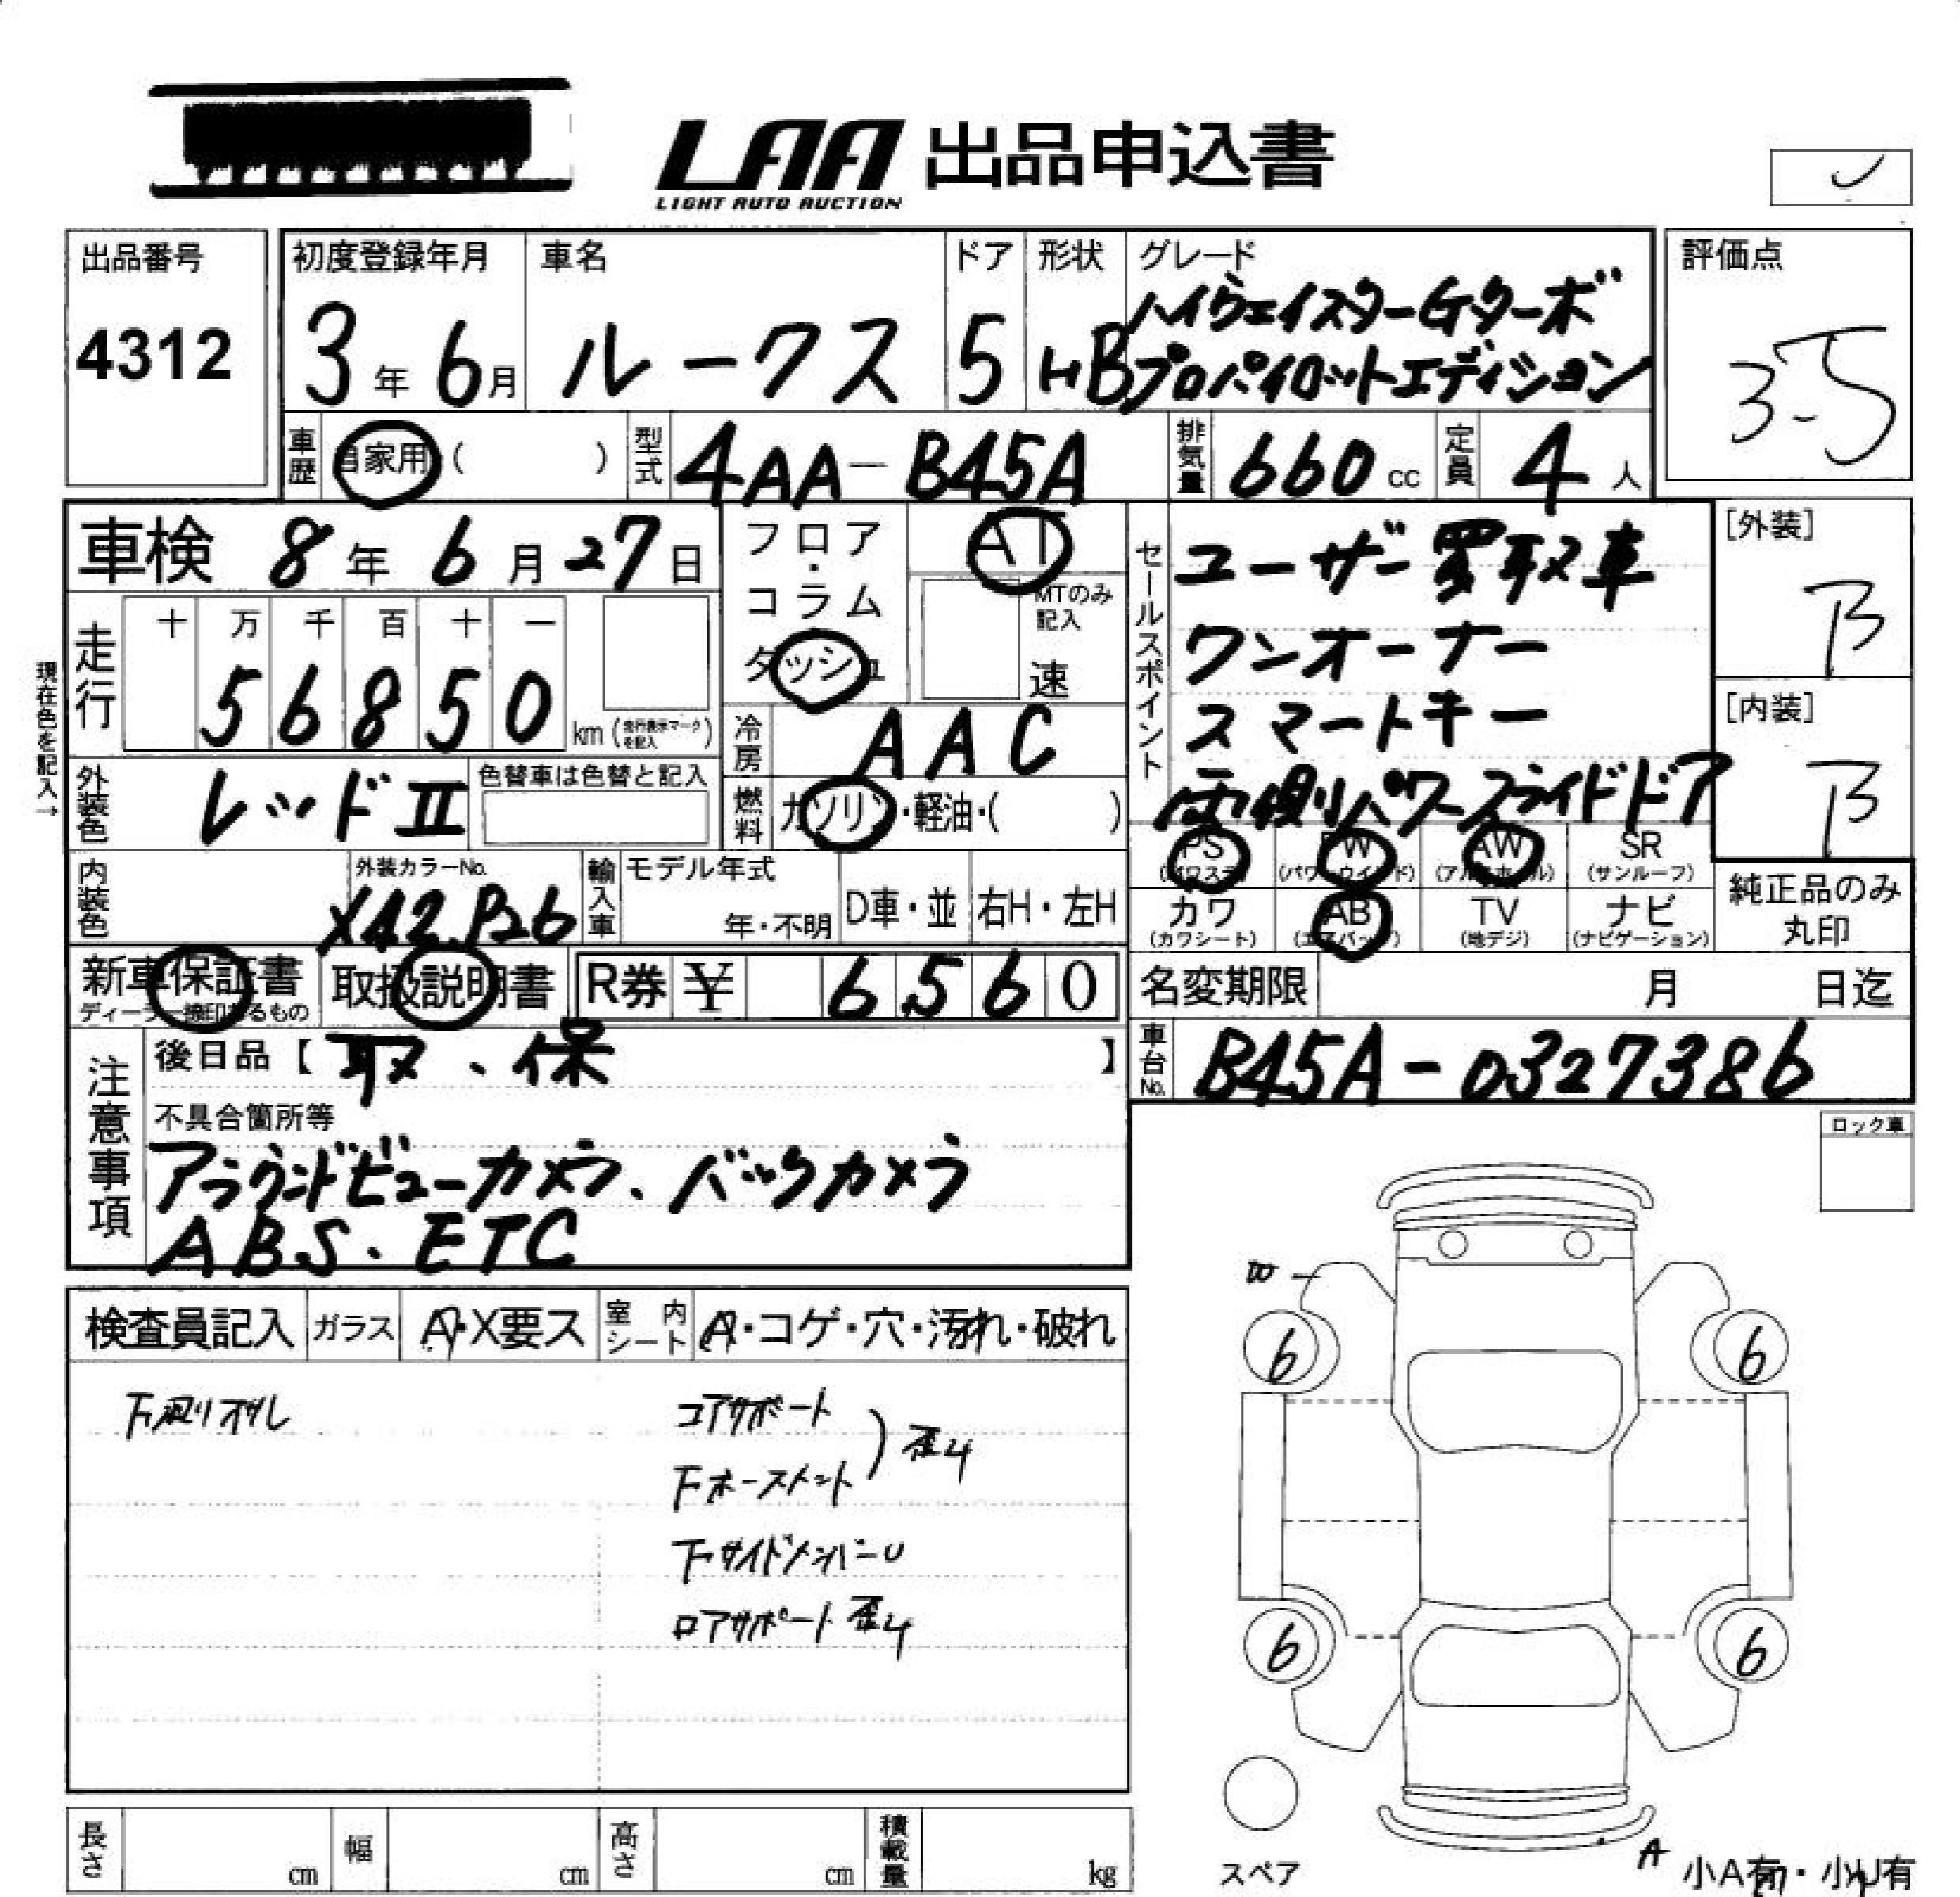 LAA 出品申込書
LIGHT AUTO AUCTION
出品番号
4312
初度登録年月
3年6月
車名
ルークス
ドア
5
形状
HB
グレード
ハイウェイスターGターボ
プロパイロットエディション
評価点
3.5
車歴
自家用 ( )
型式
4AA-B45A
排気量
660cc
定員
4人
車検 8年6月27日
フロア・コラム
ダッシュ
AT
MTのみ記入
速
セールスポイント
ユーザー買取車
ワンオーナー
スマートキー
両側パワースライドドア
[外装]
B
[内装]
B
現在色を記入→
走行
十 万 千 百 十 一
5 6 8 5 0 km (走行表示マークを記入)
冷房
AAC
外装色
レッドII
色替車は色替と記入
燃料
ガソリン・軽油・( )
PS (パワステ)
PW (パワーウインド)
AW (アルミホイル)
SR (サンルーフ)
カワ (カワシート)
AB (エアバッグ)
TV (地デジ)
ナビ (ナビゲーション)
純正品のみ丸印
内装色
外装カラーNo.
X42.P26
輸入車
モデル年式
年・不明
D車・並
右H・左H
新車保証書
ディーラー捺印あるもの
取扱説明書
R券 ¥ 6560
名変期限 月 日迄
注意事項
後日品【取、保】
不具合箇所等
アラウンドビューカメラ、バックカメラ
ABS、ETC
車台No.
B45A-0327386
ロック車
検査員記入
ガラス
A・X要ス
室内シート
A・コゲ・穴・汚れ・破れ
コアサポート
ホースメント
歪ミ
サイドメンバーU
ロアサポート 歪ミ
6
6
6
6
スペア
A
小A有・小U有
長さ cm
幅 cm
高さ cm
積載量 kg